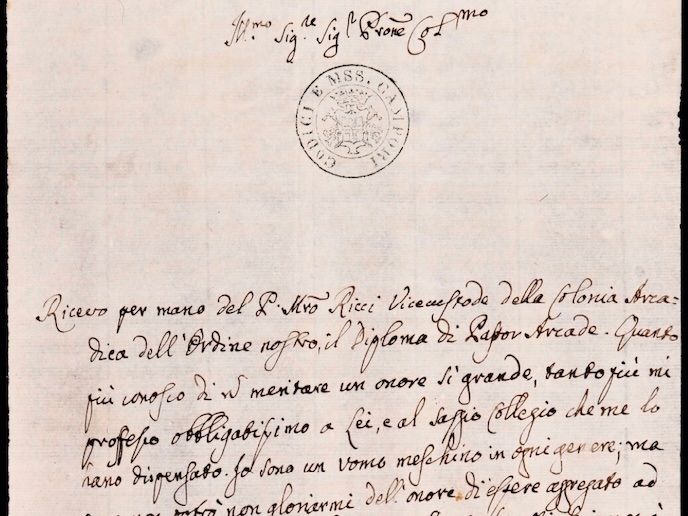 Ill.mo Sig.re Sig.r Prone Col.mo
CODICI E MSS. CAMPORI
Ricevo per mano del P. Mro Ricci Vicecustode della Colonia Arca-
dica dell'Ordine nostro, il Diploma di Pastor Arcade. Quanto
più conosco di meritare un onore sì grande, tanto più mi
professo obbligatissimo a Lei, e al Saggio Collegio che me lo
dispensato. Io sono un vomo meschino in ogni genere; ma
non gloriarmi dell'onore di essere aggregato ad